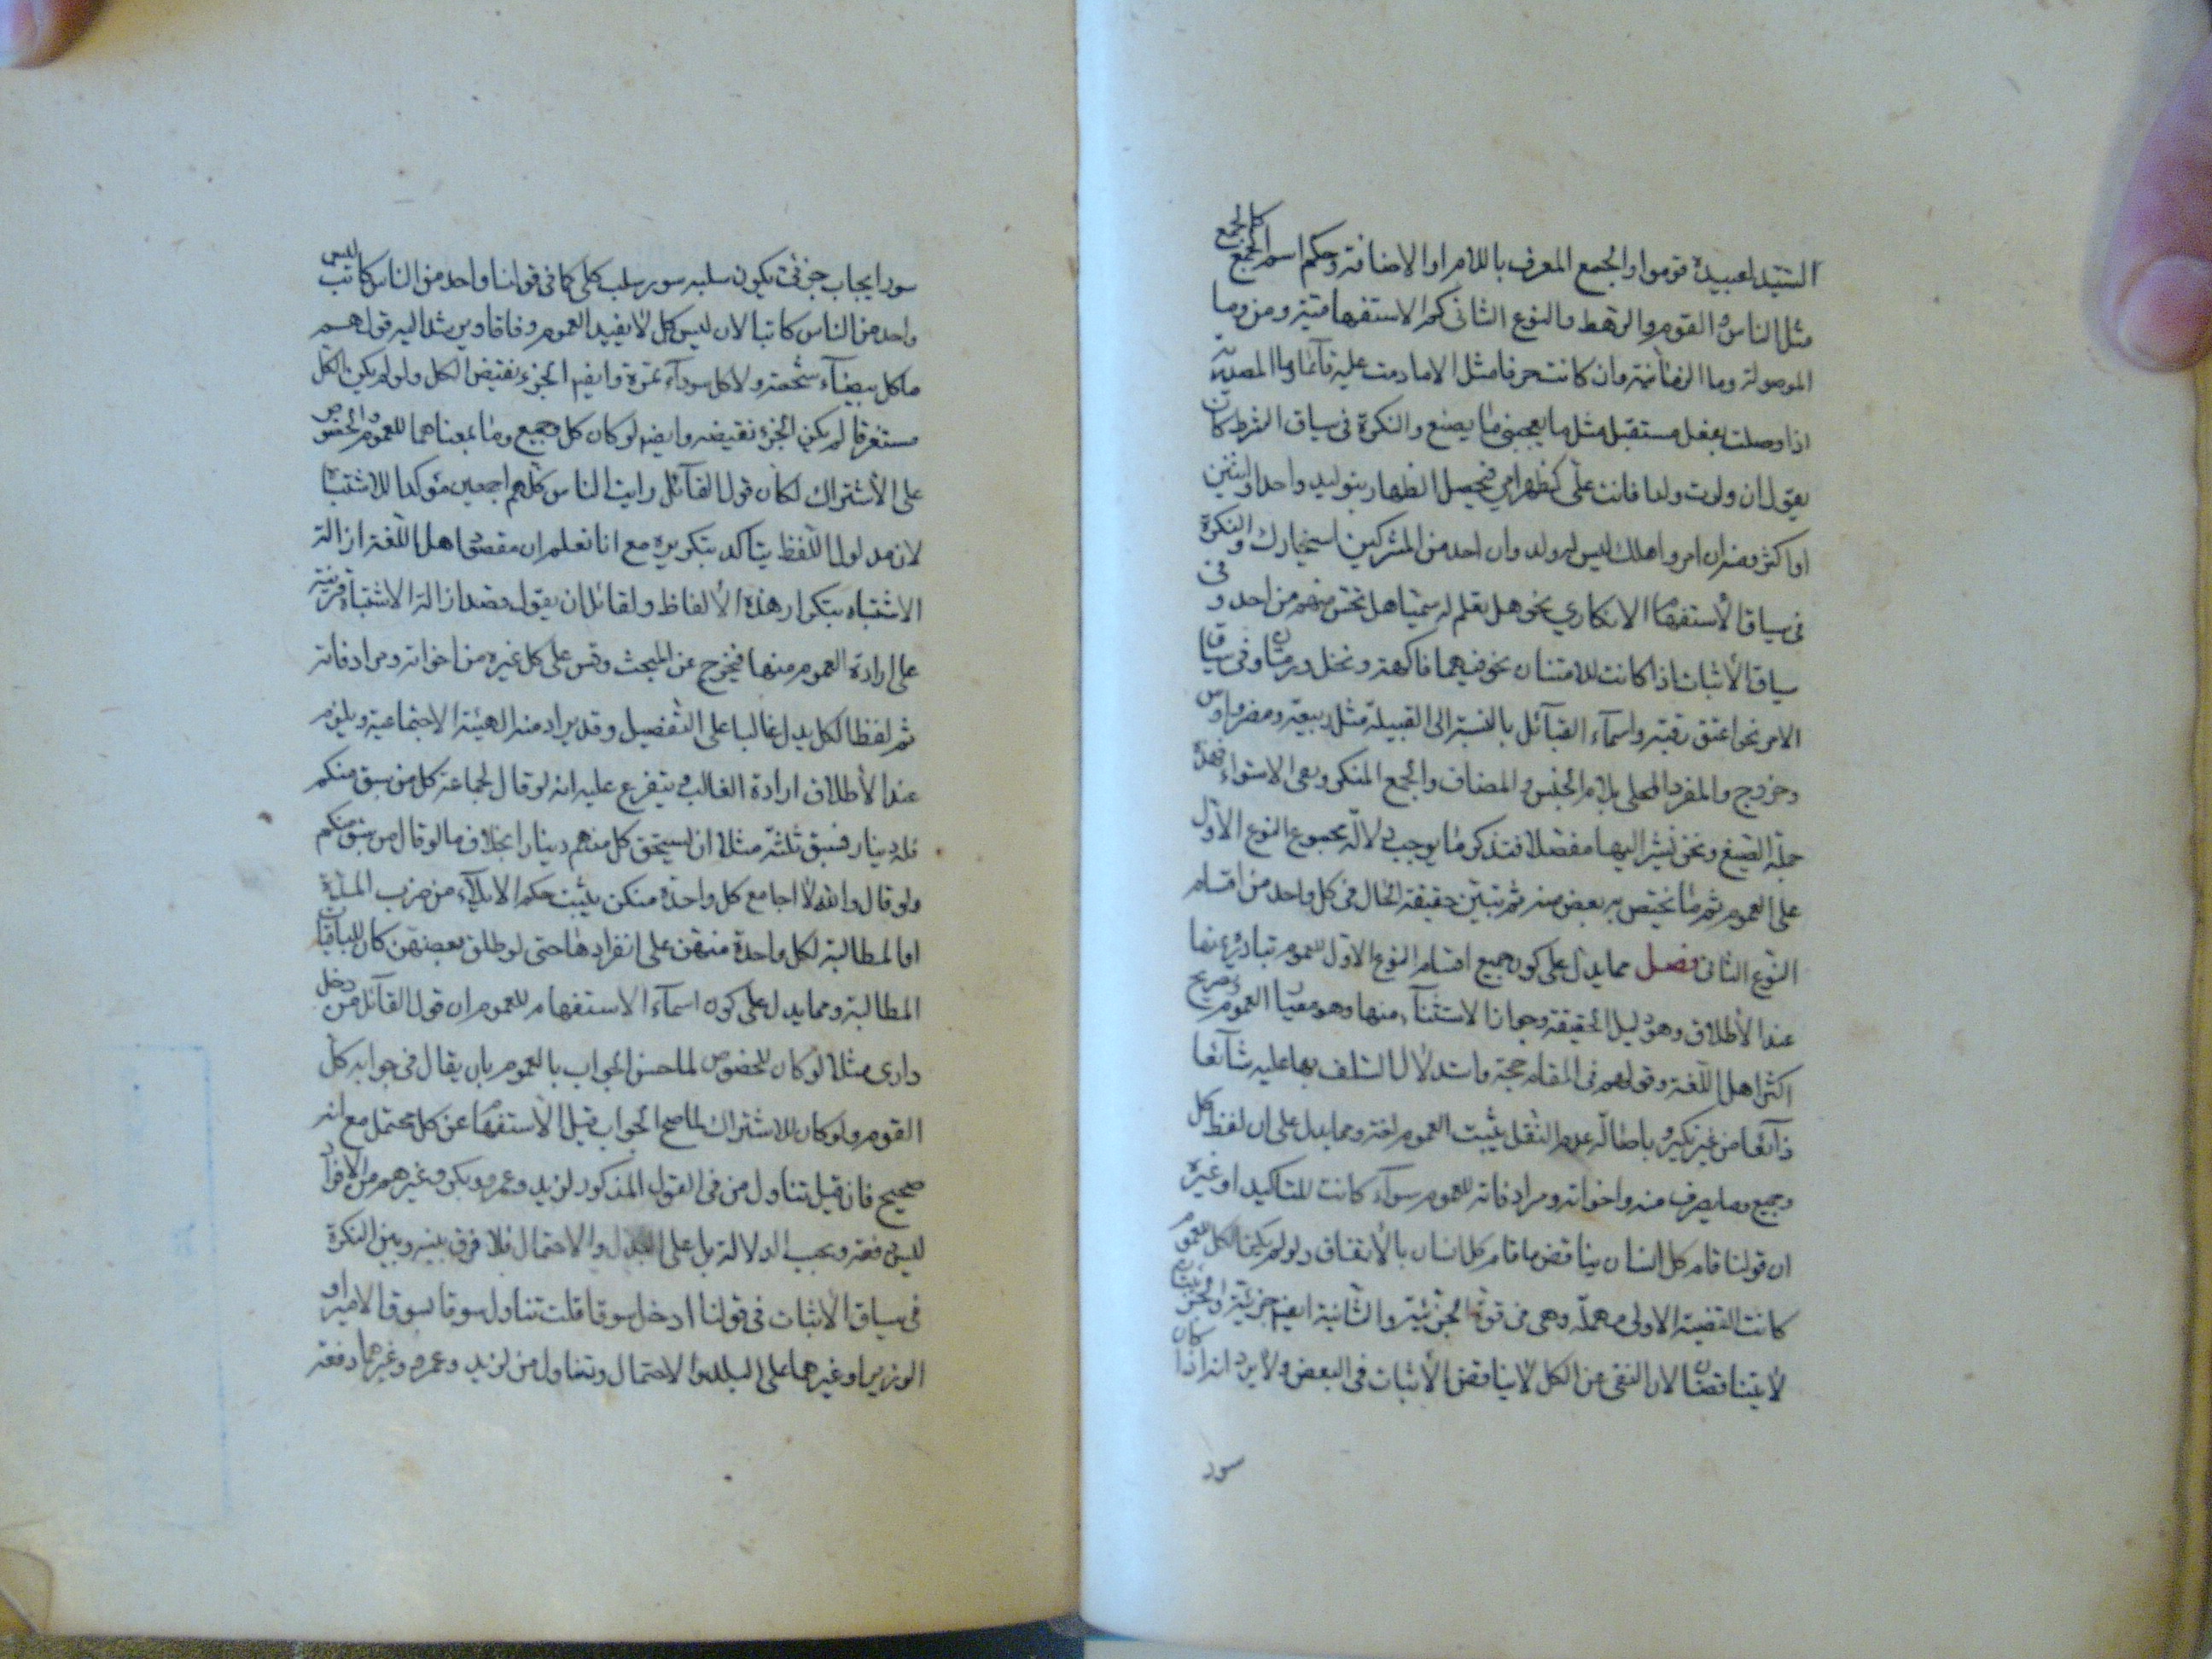 السيد لعبيده قوموا والجمع المعرف باللام او الاضافة وحكم اسم الجمع كالجمع
مثل الناس والقوم والرهط والنوع الثاني كم الاستفهامية ومن وما
الموصولة وما الزمانية وان كانت حرفا مثل الا ما دمت عليه قائما وما المصدرية
اذا وصلت بفعل مستقبل مثل ما يعجبني ما يصنع والنكرة في سياق الشرط كان
يقول ان ولدت ولدا فانت علي كظهر امي فيحصل الظهار بتوليد واحد او اثنين
او اكثر ومنه ان امرو اهلك ليس له ولد وان احد من المشركين استجارك والنكرة
في سياق الاستفهام الانكاري نحو هل تعلم له سميا هل تحس منهم من احد وفي
سياق الاثبات اذا كانت للامتنان نحو فيهما فاكهة ونخل ورمان وفي سياق
الامر نحو اعتق رقبة واسماء القبائل بالنسبة الى القبيلة مثل ربيعة ومضر واوس
وخزرج والمفرد المحلى بلام الجنس والمضاف والجمع المنكر ونفي الاستواء فهذه
جملة الصيغ ونحن نشير اليها مفصلا فنذكر ما يوجب دلالة مجموع النوع الاول
على العموم ثم ما يختص به بعض منه ثم تبيين حقيقة الحال في كل واحد من اقسام
النوع الثاني فصل مما يدل على كون جميع اقسام النوع الاول للعموم تبادره عنها
عند الاطلاق وهو دليل الحقيقة وجواز الاستثناء منها وهو معيار العموم وتصريح
اكثر اهل اللغة وقولهم في المقام حجة واستدلال السلف بها عليه شائعا
ذائعا من غير نكير وباصالة عدم النقل يثبت العموم لغة ومما يدل على ان لفظ كل
وجميع وما يصرف منه واخواته ومرادفاته للعموم سواء كانت للتاكيد او غيره
ان قولنا قام كل انسان يناقض ما قام كل انسان بالاتفاق ولو لم يكن الكل للعموم
كانت القضية الاولى مهملة وهي في قوة الجزئية والثانية ايضا جزئية والجزئيتان
لا يتناقضان لان النفي عن الكل لا يناقض الاثبات في البعض ولا يرد انه اذا كان
سور
سور ايجاب جزئي يكون سلبه سور سلب كلي كما في قولنا واحد من الناس كاتب ليس
واحد من الناس كاتبا لان ليس كل لا يفيد العموم وفاقا ويرشد اليه قولهم
ما كل بيضاء شحمة ولا كل سوداء تمرة وايضا الجزء نقيض الكل ولو لم يكن الكل
مستغرقا لم يكن الجزء نقيضه وايضا لو كان كل وجميع وما بمعناهما للعموم والخصوص
على الاشتراك لكان قول القائل رايت الناس كلهم اجمعين مؤكدا للاشتباه
لان مدلول اللفظ يتاكد بتكريره مع انا نعلم ان مقصود اهل اللغة ازالة
الاشتباه بتكرار هذه الالفاظ ولقائل ان يقول قصد ازالة الاشتباه قرينة
على ارادة العموم منها فيخرج عن المبحث وقس على كل غيره من اخواته ومرادفاته
ثم لفظ الكل يدل غالبا على التفصيل وقد يراد منه الهيئة الاجتماعية ويلزم
عند الاطلاق ارادة الغالب ويتفرع عليه انه لو قال لجماعة كل من سبق منكم
فله دينار فسبق ثلثة مثلا ان يستحق كل منهم دينارا بخلاف ما لو قال من سبق منكم
ولو قال والله لا اجامع كل واحدة منكن يثبت حكم الايلاء من ضرب المدة
او المطالبة لكل واحدة منهن على انفرادها حتى لو طلق بعضهن كان للباقيات
المطالبة ومما يدل على كون اسماء الاستفهام للعموم ان قول القائل من دخل
داري مثلا لو كان للخصوص لما حسن الجواب بالعموم بان يقال في جوابه كل
القوم ولو كان للاشتراك لما صح الجواب قبل الاستفهام عن كل محتمل مع انه
صحيح فان قيل تناول من في القول المذكور لزيد وعمرو وبكر وغيرهم من الافراد
ليس دفعة وبحسب الدلالة بل على البدل والاحتمال فلا فرق بينه وبين النكرة
في سياق الاثبات في قولنا ادخل سوقا قلت تناول سوقا لسوق الامير او
الوزير او غيرها على البلدية والاحتمال وتناول من لزيد وعمرو وغيرهما دفعة